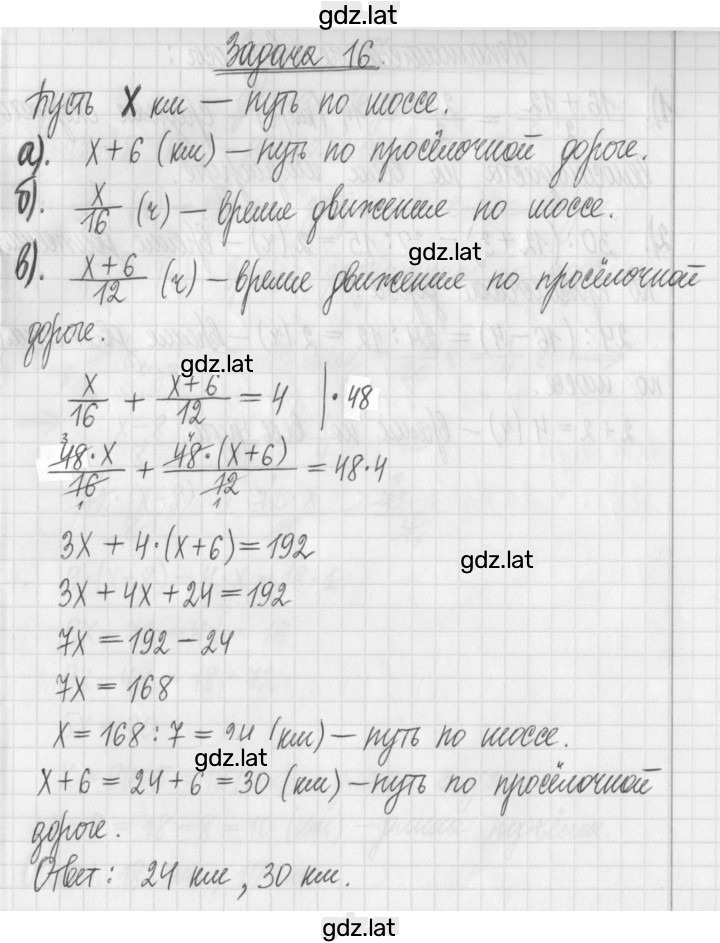 gdz.lat
Задача 16.
Пусть X км — путь по шоссе.
а). X+6 (км) — путь по просёлочной дороге.
б). X/16 (ч) — время движения по шоссе.
gdz.lat
в). (X+6)/12 (ч) — время движения по просёлочной
дороге.
gdz.lat
X/16 + (X+6)/12 = 4 | · 48
48·X/16 + 48·(X+6)/12 = 48·4
3X + 4·(X+6) = 192
gdz.lat
3X + 4X + 24 = 192
7X = 192 − 24
7X = 168
X = 168 : 7 = 24 (км) — путь по шоссе.
gdz.lat
X+6 = 24+6 = 30 (км) — путь по просёлочной
дороге.
Ответ: 24 км, 30 км.
gdz.lat